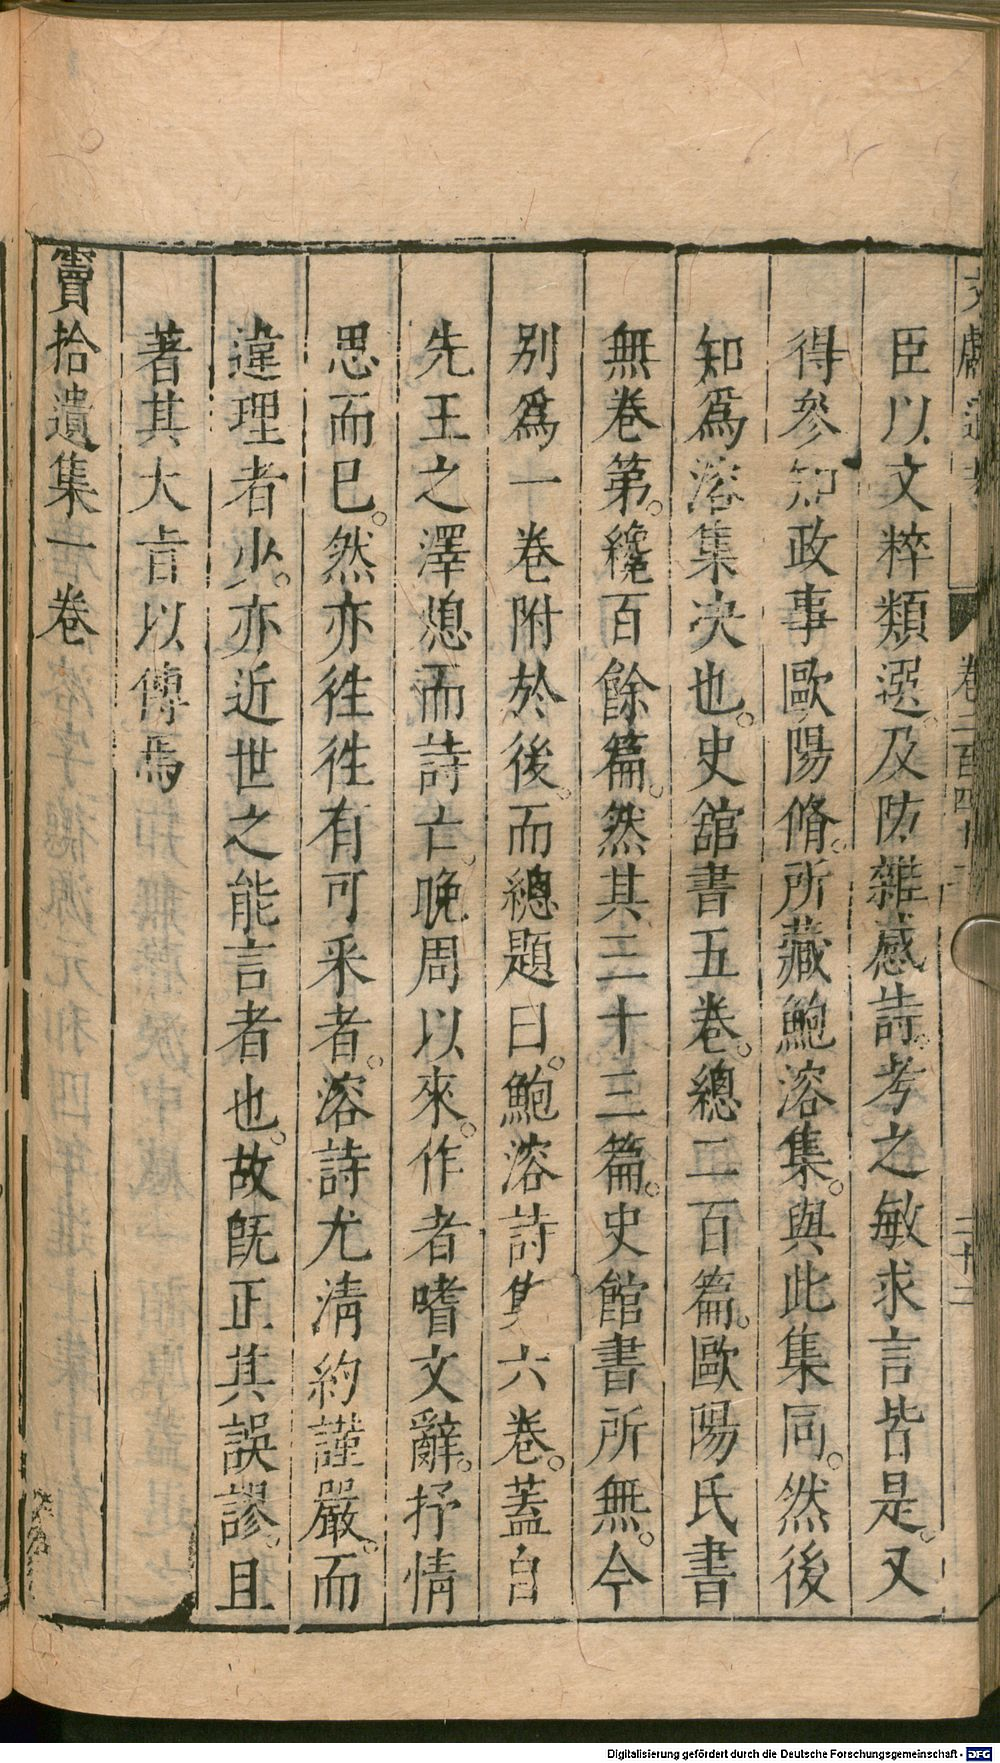 文獻通考 卷二百四十三 三十二
臣以文粹類選。及防雜感詩。考之敏求言皆是。又
得參知政事歐陽脩。所藏鮑溶集。與此集同。然後
知爲溶集决也。史舘書五卷。總二百篇。歐陽氏書
無卷第。纔百餘篇。然其三十三篇。史館書所無。今
別爲一卷附於後。而總題曰。鮑溶詩集六卷。蓋自
先王之澤熄而詩亡。晚周以來。作者嗜文辭。抒情
思而已。然亦徃徃有可采者。溶詩尤清約謹嚴。而
違理者少。亦近世之能言者也。故旣正其誤謬。且
著其大旨以傳焉
竇拾遺集一卷
Digitalisierung gefördert durch die Deutsche Forschungsgemeinschaft - DFG